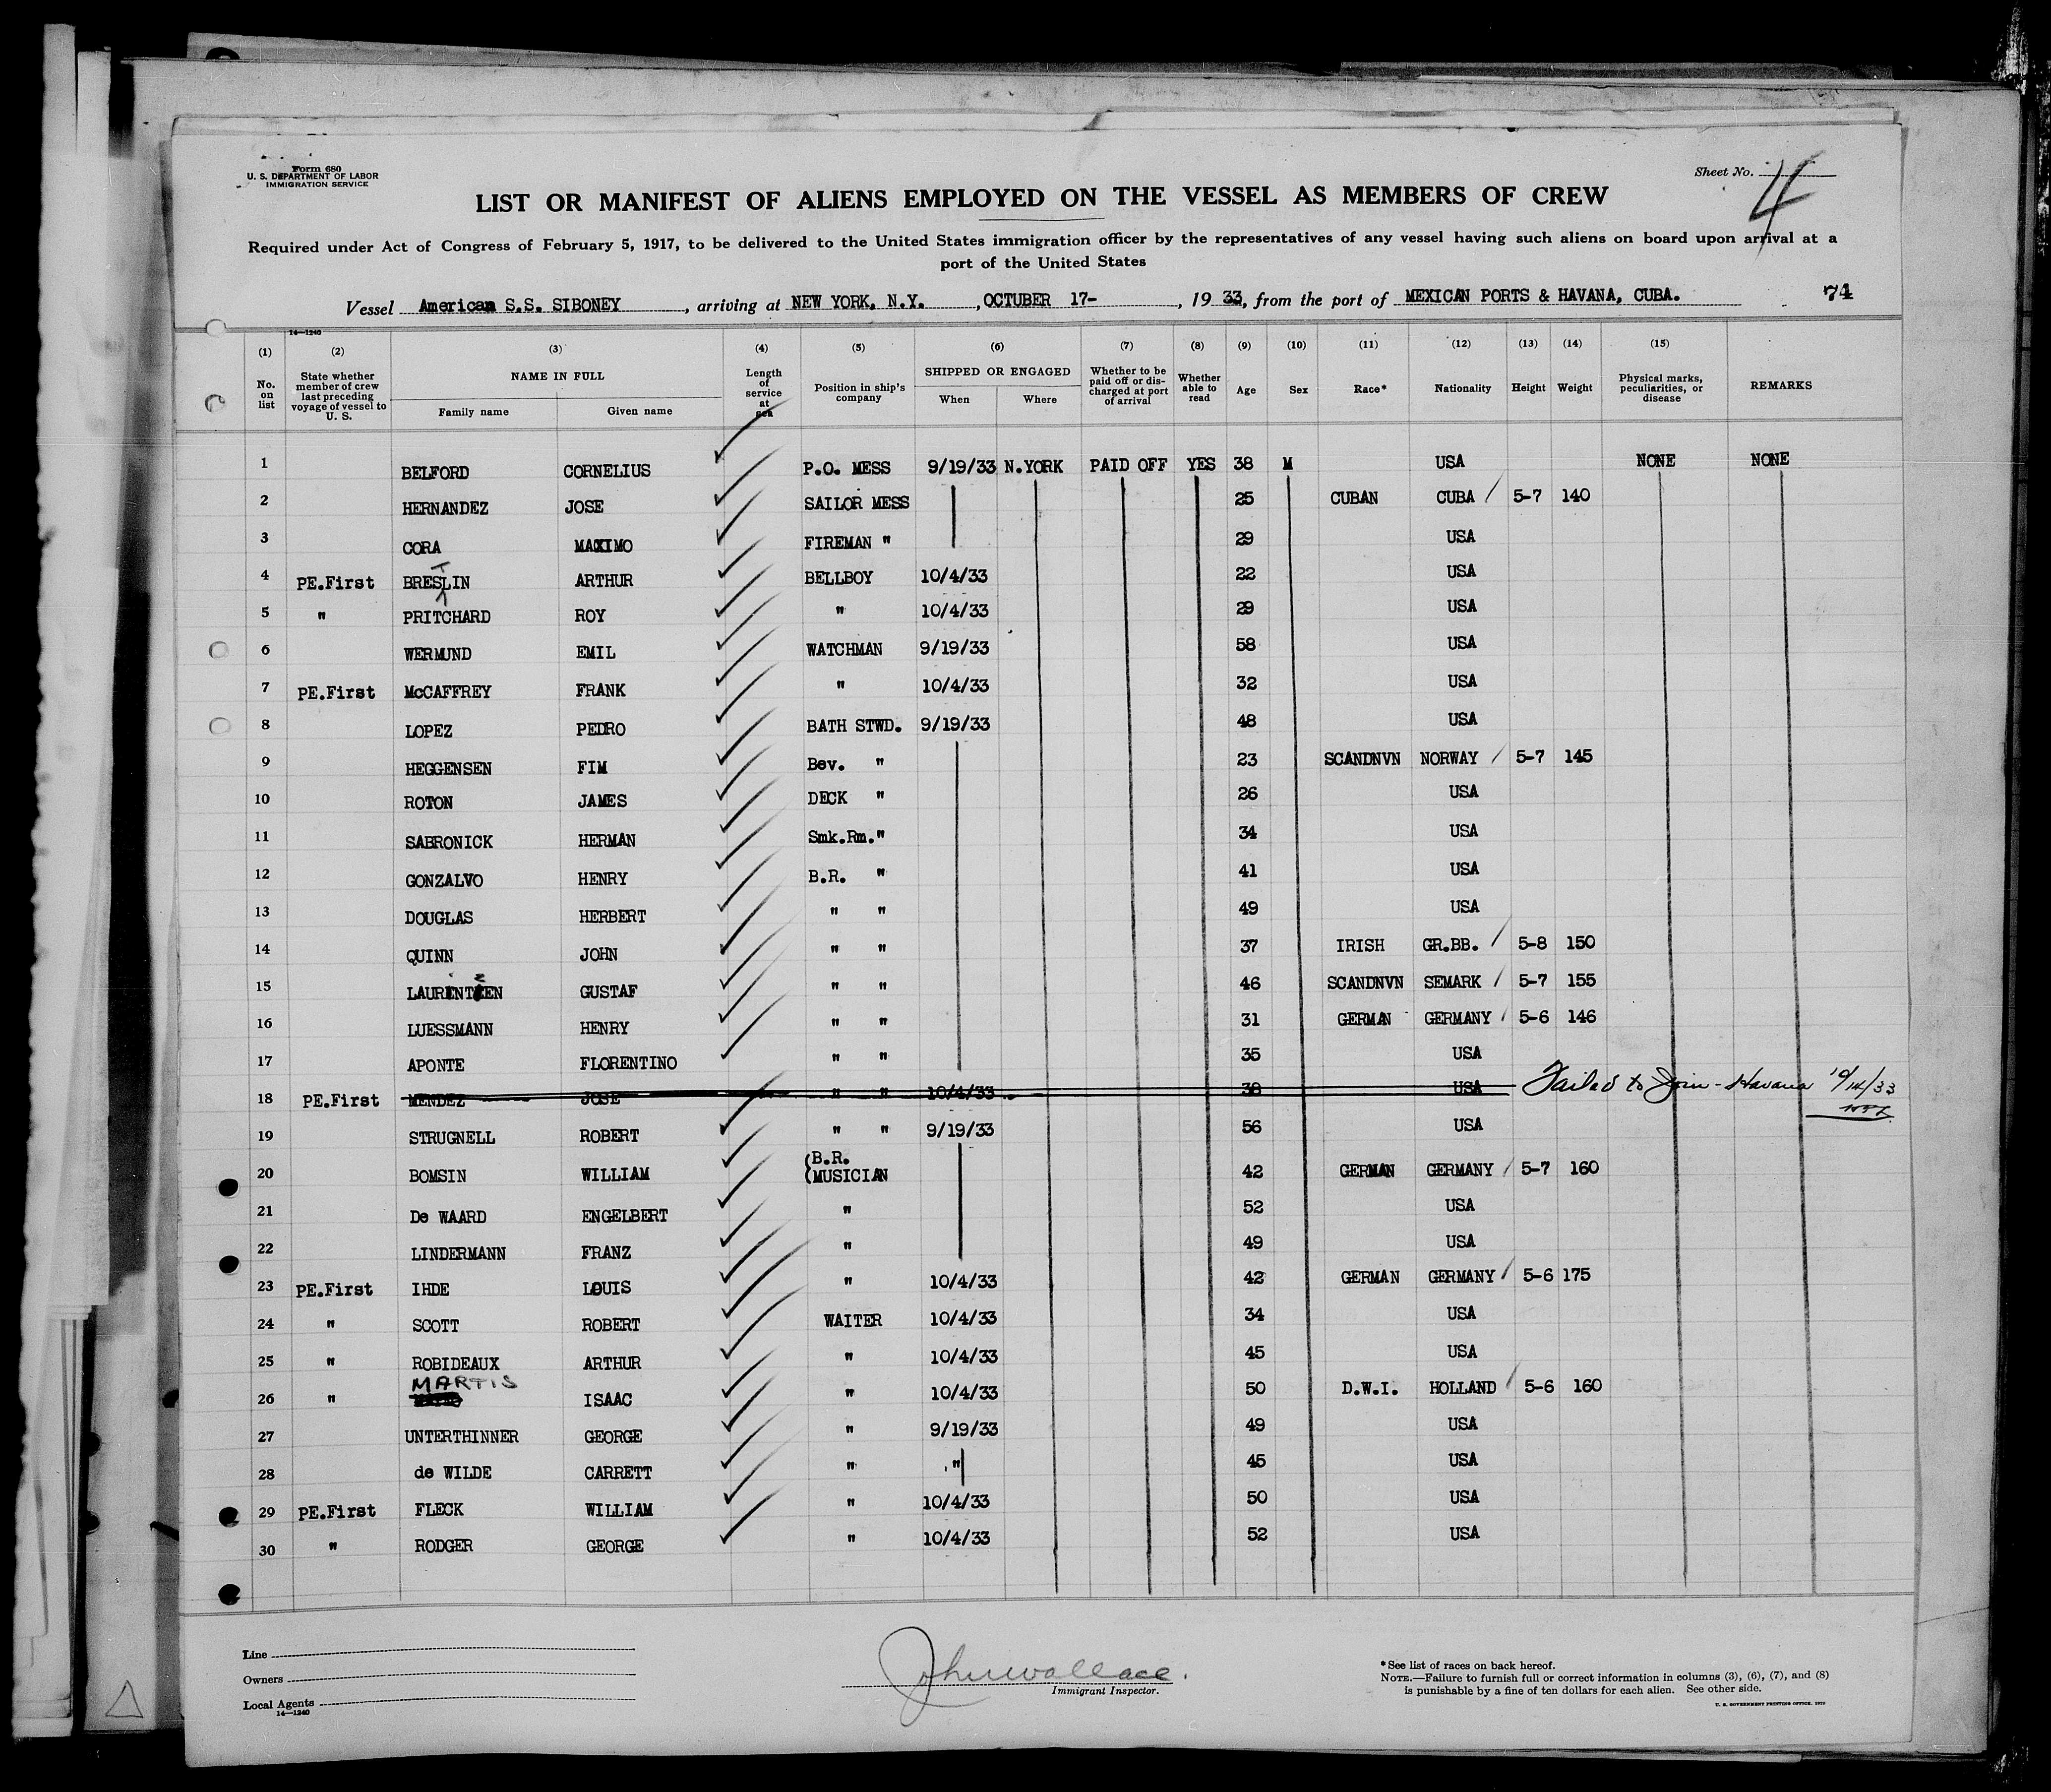 Form 680
U. S. DEPARTMENT OF LABOR
IMMIGRATION SERVICE
Sheet No. 4
LIST OR MANIFEST OF ALIENS EMPLOYED ON THE VESSEL AS MEMBERS OF CREW
Required under Act of Congress of February 5, 1917, to be delivered to the United States immigration officer by the representatives of any vessel having such aliens on board upon arrival at a
port of the United States
Vessel American S.S. SIBONEY, arriving at NEW YORK, N.Y., OCTUBER 17-, 1933, from the port of MEXICAN PORTS & HAVANA, CUBA. 74
14—1240
(1) (2) (3) (4) (5) (6) (7) (8) (9) (10) (11) (12) (13) (14) (15)
No. on list State whether member of crew last preceding voyage of vessel to U. S. NAME IN FULL Family name Given name Length of service at sea Position in ship's company SHIPPED OR ENGAGED When Where Whether to be paid off or discharged at port of arrival Whether able to read Age Sex Race* Nationality Height Weight Physical marks, peculiarities, or disease REMARKS
1 BELFORD CORNELIUS P.O. MESS 9/19/33 N.YORK PAID OFF YES 38 M USA NONE NONE
2 HERNANDEZ JOSE SAILOR MESS 25 CUBAN CUBA 5-7 140
3 CORA MAXIMO FIREMAN " 29 USA
4 PE.First BRESLIN T ARTHUR BELLBOY 10/4/33 22 USA
5 " PRITCHARD ROY " 10/4/33 29 USA
6 WERMUND EMIL WATCHMAN 9/19/33 58 USA
7 PE.First McCAFFREY FRANK " 10/4/33 32 USA
8 LOPEZ PEDRO BATH STWD. 9/19/33 48 USA
9 HEGGENSEN FIM Bev. " 23 SCANDNVN NORWAY 5-7 145
10 ROTON JAMES DECK " 26 USA
11 SABRONICK HERMAN Smk.Rm." 34 USA
12 GONZALVO HENRY B.R. " 41 USA
13 DOUGLAS HERBERT " " 49 USA
14 QUINN JOHN " " 37 IRISH GR.BB. 5-8 150
15 LAURINTZEN GUSTAF " " 46 SCANDNVN SEMARK 5-7 155
16 LUESSMANN HENRY " " 31 GERMAN GERMANY 5-6 146
17 APONTE FLORENTINO " " 35 USA
18 PE.First MENDEZ JOSE " " 10/4/33 38 USA Failed to Join - Havana 10/14/33
19 STRUGNELL ROBERT " " 9/19/33 56 USA
20 BOMSIN WILLIAM (B.R. (MUSICIAN 42 GERMAN GERMANY 5-7 160
21 De WAARD ENGELBERT " 52 USA
22 LINDERMANN FRANZ " 49 USA
23 PE.First IHDE LOUIS " 10/4/33 42 GERMAN GERMANY 5-6 175
24 " SCOTT ROBERT WAITER 10/4/33 34 USA
25 " ROBIDEAUX ARTHUR " 10/4/33 45 USA
26 " MARTIS ISAAC " 10/4/33 50 D.W.I. HOLLAND 5-6 160
27 UNTERTHINNER GEORGE " 9/19/33 49 USA
28 de WILDE CARRETT " " 45 USA
29 PE.First FLECK WILLIAM " 10/4/33 50 USA
30 " RODGER GEORGE " 10/4/33 52 USA
Line
Owners
Local Agents
14—1240
John Wallace.
Immigrant Inspector.
* See list of races on back hereof.
NOTE.—Failure to furnish full or correct information in columns (3), (6), (7), and (8)
is punishable by a fine of ten dollars for each alien. See other side.
U. S. GOVERNMENT PRINTING OFFICE.